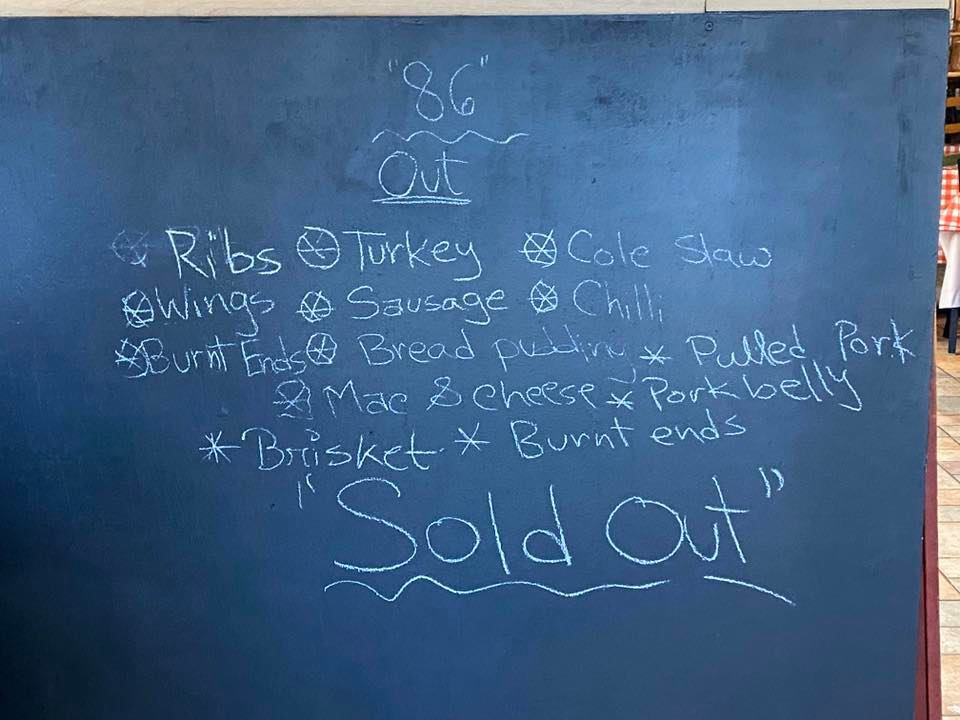 "86"
Out
Ribs Turkey Cole Slaw
Wings Sausage Chilli
Burnt Ends Bread pudding * Pulled Pork
Mac & cheese * Pork belly
* Brisket * Burnt ends
"Sold Out"